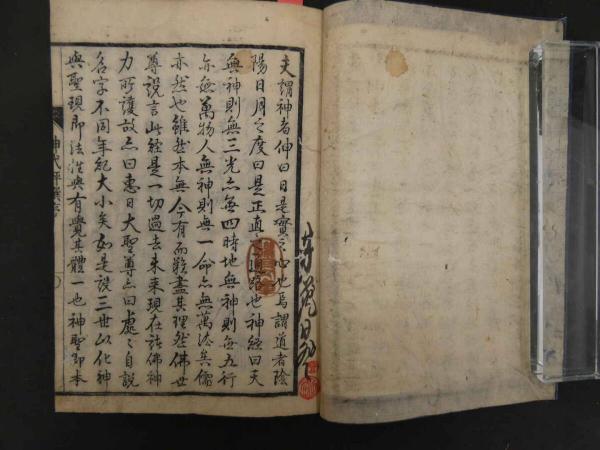 夫謂神者伸曰日是實之心也焉謂道者陰
陽日月之度曰是正直之道路也神經曰天
無神則無三光亦無四時地無神則無五行
亦無萬物人無神則無一命亦無萬法矣儒
亦然也雖然本無今有而難盡其理然佛世
尊説言此經是一切過去未來現在諸佛神
力所護故亦曰惠日大聖尊亦曰處〻自説
名字不同年紀大小矣如是説三世以化神
與聖現即法性與有覺其體一也神聖即本